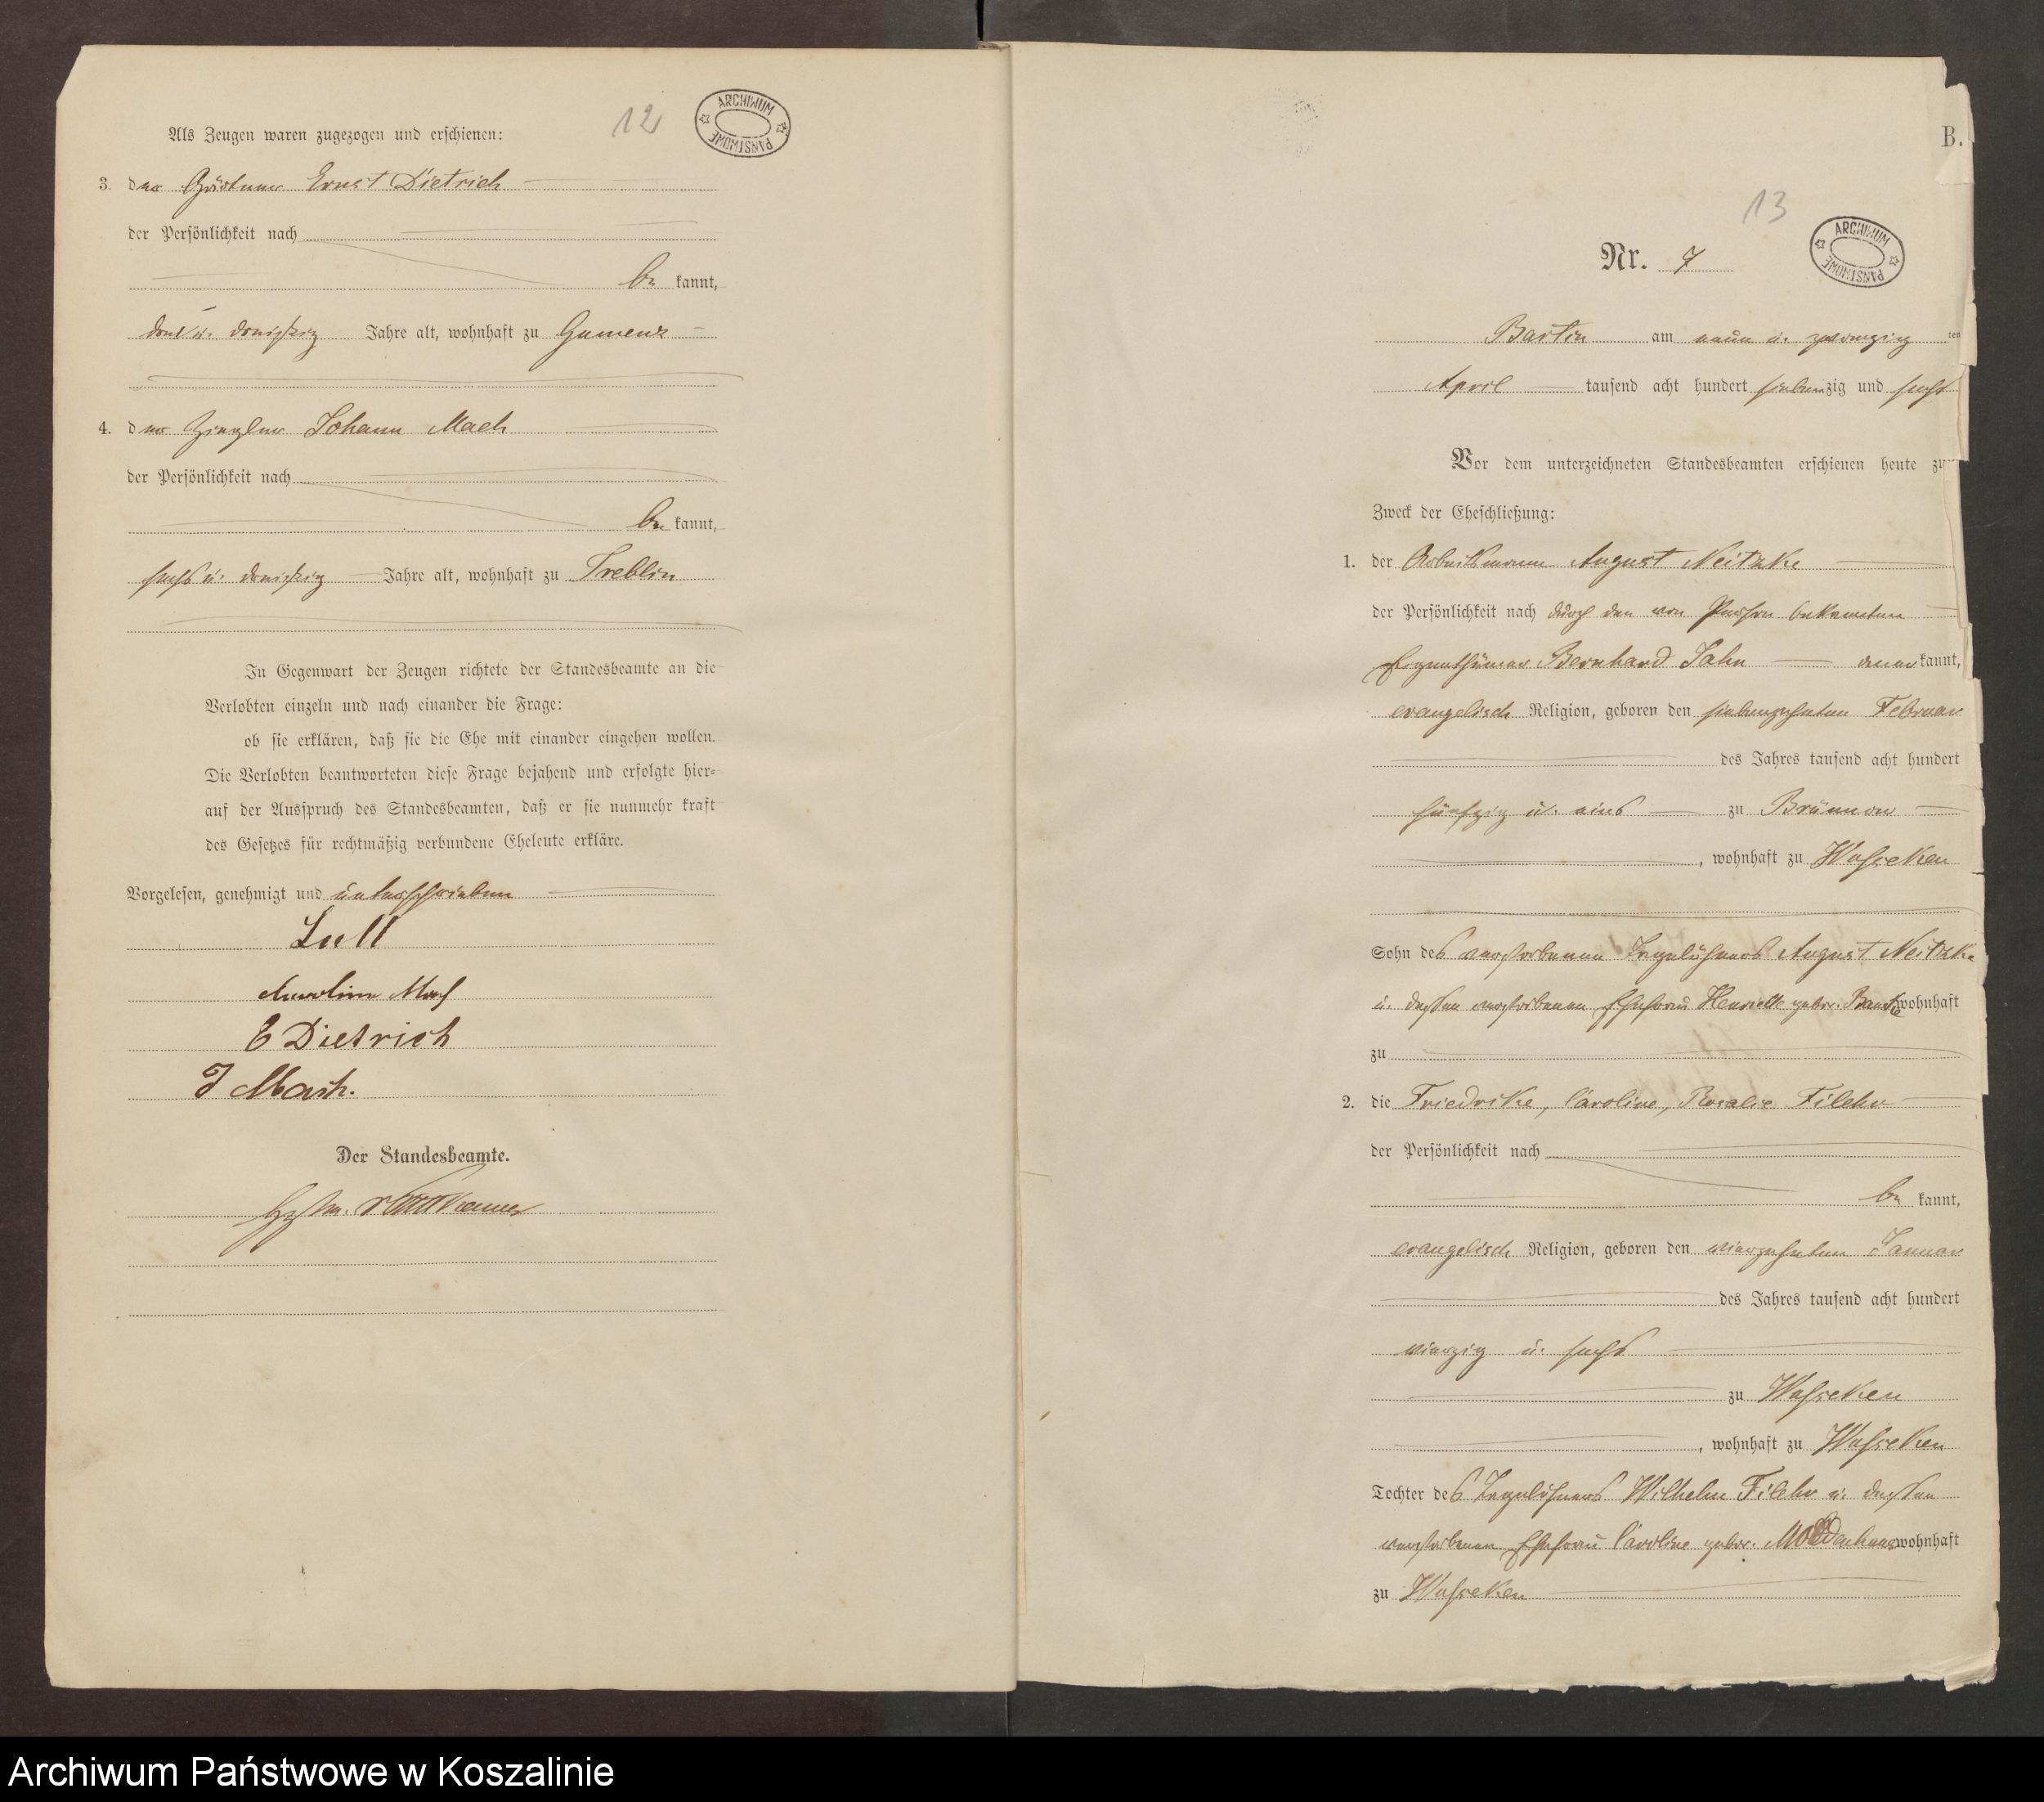 12
ARCHIWUM PAŃSTWOWE
Als Zeugen waren zugezogen und erschienen:
3. der Gärtner Ernst Dietrich
der Persönlichkeit nach
be kannt,
drei u. dreißig Jahre alt, wohnhaft zu Gumenz
4. der Ziegler Johann Mach
der Persönlichkeit nach
be kannt,
sechs u. dreißig Jahre alt, wohnhaft zu Treblin
In Gegenwart der Zeugen richtete der Standesbeamte an die
Verlobten einzeln und nach einander die Frage:
ob sie erklären, daß sie die Ehe mit einander eingehen wollen.
Die Verlobten beantworteten diese Frage bejahend und erfolgte hier-
auf der Ausspruch des Standesbeamten, daß er sie nunmehr kraft
des Gesetzes für rechtmäßig verbundene Eheleute erkläre.
Vorgelesen, genehmigt und unterschrieben
Lull
Mach
E Dietrich
J Mach.
Der Standesbeamte.
B.
13
Nr. 7
ARCHIWUM PAŃSTWOWE
Bartin am neun u. zwanzig ten
April tausend acht hundert siebenzig und sechs
Vor dem unterzeichneten Standesbeamten erschienen heute zu
Zweck der Eheschließung:
1. der Arbeitsmann August Neitzke
der Persönlichkeit nach durch den von Person bekannten
Eigenthümer Bernhard Jahn aner kannt,
evangelisch Religion, geboren den siebenzehnten Februar
des Jahres tausend acht hundert
fünfzig u. eins zu Brünnow
, wohnhaft zu Wusseken
Sohn des verstorbenen Tagelöhners August Neitzke
u. dessen verstorbenen Ehefrau Henriette gebor. wohnhaft
zu
2. die Friedrike, Caroline, Rosalie Filehr
der Persönlichkeit nach
be kannt,
evangelisch Religion, geboren den vierzehnten Januar
des Jahres tausend acht hundert
vierzig u. sechs
zu Wusseken
, wohnhaft zu Wusseken
Tochter des Tagelöhners Wilhelm Filehr u. dessen
verstorbenen Ehefrau Caroline gebor. Moldenhauer wohnhaft
zu Wusseken
Archiwum Państwowe w Koszalinie